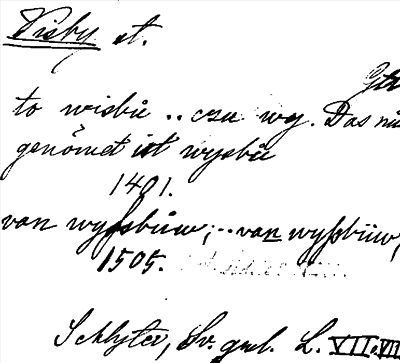 Visby, st.
Gtl
to wisbů .. czu wy. Das nu
genŏmet ist wysbůe
1401.
van wyssbůw; .. van wyssbüw,
1505.
Schlyter, Sv. gml. L. VII. VII